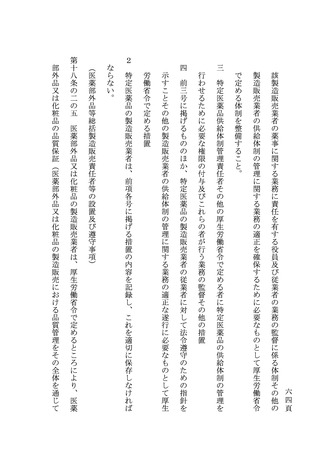 六四頁
該製造販売業者の薬事に関する業務に責任を有する役員及び従業者の業務の監督に係る体制その他の
製造販売業者の供給体制の管理に関する業務の適正を確保するために必要なものとして厚生労働省令
で定める体制を整備すること。
三　特定医薬品供給体制管理責任者その他の厚生労働省令で定める者に特定医薬品の供給体制の管理を
行わせるために必要な権限の付与及びこれらの者が行う業務の監督その他の措置
四　前三号に掲げるもののほか、特定医薬品の製造販売業者の従業者に対して法令遵守のための指針を
示すことその他の製造販売業者の供給体制の管理に関する業務の適正な遂行に必要なものとして厚生
労働省令で定める措置
２　特定医薬品の製造販売業者は、前項各号に掲げる措置の内容を記録し、これを適切に保存しなければ
ならない。
（医薬部外品等総括製造販売責任者等の設置及び遵守事項）
第十八条の二の五　医薬部外品又は化粧品の製造販売業者は、厚生労働省令で定めるところにより、医薬
部外品又は化粧品の品質保証（医薬部外品又は化粧品の製造販売における品質管理をその全体を通じて